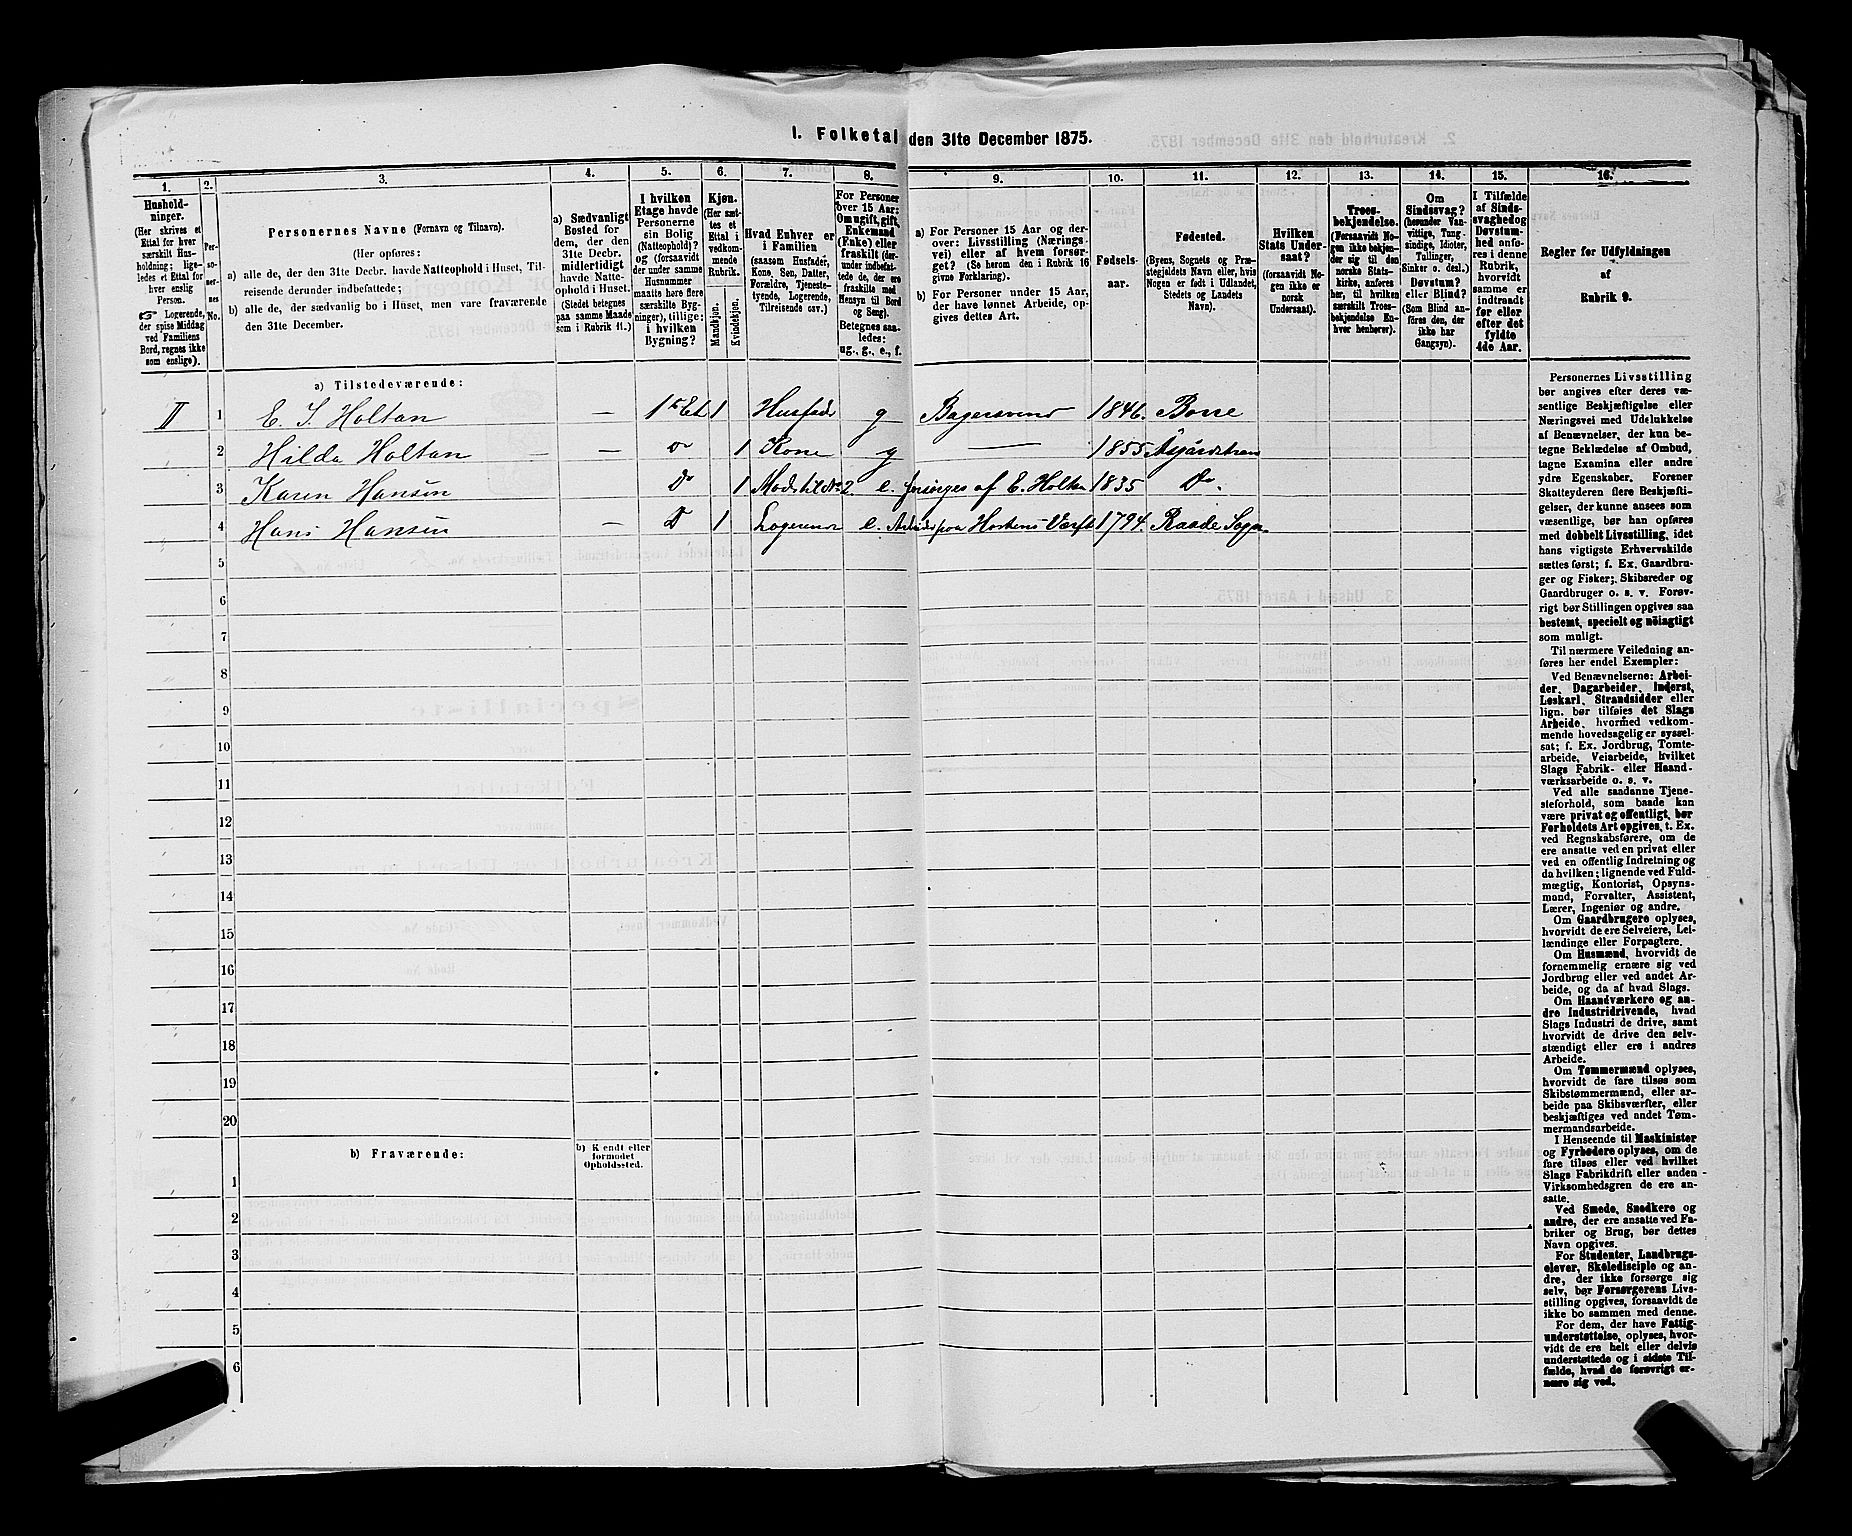 I. Folketal den 31te December 1875.
1. 2. 3. 4. 5. 6. 7. 8. 9. 10. 11. 12. 13. 14. 15. 16.
Hushold-
ninger.
(Her skrives et
Ettal for hver
særskilt Hus-
holdning; lige-
ledes et Ettal for
hver enslig
Person.
☞ Logerende,
der spise Middag
ved Familiens
Bord, regnes ikke
som enslige).
Per-
so-
ner-
nes
No.
Personernes Navne (Fornavn og Tilnavn).
(Her opføres:
a) alle de, der den 31te Decbr. havde Natteophold i Huset, Til-
reisende derunder indbefattede;
b) alle de, der sædvanlig bo i Huset, men vare fraværende
den 31te December.
a) Sædvanligt
Bosted for
dem, der den
31te Decbr.
midlertidigt
havde Natte-
ophold i Huset.
(Stedet betegnes
paa samme Maade
som i Rubrik 11.)
I hvilken
Etage havde
Personerne
sin Bolig
(Natteophold)?
og (forsaavidt
der under samme
Husnummer
maatte høre flere
særskilte Byg-
ninger), tillige:
i hvilken
Bygning?
Kjøn.
(Her sæt-
tes et
Ettal i
vedkom-
mende
Rubrik.
Mandkjøn.
Kvindekjøn.
Hvad Enhver er
i Familien
(saasom Husfader,
Kone, Søn, Datter,
Forældre, Tjeneste-
tyende, Logerende,
Tilreisende osv.)
For Personer
over 15 Aar:
Om ugift, gift,
Enkemand
(Enke) eller
fraskilt (der-
under indbefat-
tede de, der ere
fraskilte med
Hensyn til Bord
og Seng).
Betegnes saa-
ledes:
ug., g., e., f.
a) For Personer 15 Aar og der-
over: Livsstilling (Nærings-
vei) eller af hvem forsør-
get? (Se herom den i Rubrik 16
givne Forklaring).
b) For Personer under 15 Aar,
der have lønnet Arbeide, op-
gives dettes Art.
Fødsels-
aar.
Fødested.
(Byens, Sognets og Præ-
stegjeldets Navn eller, hvis
Nogen er født i Udlandet,
Stedets og Landets
Navn).
Hvilken
Stats Under-
saat?
(forsaavidt No-
gen ikke er
norsk
Undersaat).
Troes-
bekjendelse.
(Forsaavidt No-
gen ikke bekjen-
der sig til den
norske Stats-
kirke, anføres
her, til hvilken
særskilt Troes-
bekjendelse En-
hver henhører).
Om
Sindssvag?
(herunder Van-
vittige, Tung-
sindige, Idioter,
Tullinger,
Sinker o. desl.)
Døvstum?
eller Blind?
(Som Blind an-
føres den, der
ikke har
Gangsyn).
I Tilfælde
af Sinds-
svaghed og
Døvstum-
hed anfø-
res i denne
Rubrik,
hvorvidt
samme er
indtraadt
før eller
efter det
fyldte
4de Aar.
Regler for Udfyldningen
af
Rubrik 9.
a) Tilstedeværende:
II 1 E. I. Holtan — 1ste Et 1 Husfader g Bagersvend 1846. Borre
2 Hilda Holtan — — do 1 Kone g — 1855 Aasgårdstran
3 Karen Hansen Do 1 Moder til No 2. e. forsørges af E. Holtan 1835 Do.
4 Hans Hansen — D 1 Logerende e. Arbeider paa Hortens Værft 1794. Raade Sogn
5
6
7
8
9
10
11
12
13
14
15
16
17
18
19
20
b) Fraværende:
b) Kjendt eller
formodet
Opholdssted.
1
2
3
4
5
6
Personernes Livsstilling
bør angives efter deres væ-
sentlige Beskjæftigelse eller
Næringsvei med Udelukkelse
af Benævnelser, der kun be-
tegne Beklædelse af Ombud,
tagne Examina eller andre
ydre Egenskaber. Forener
Skatteyderen flere Beskjæfti-
gelser, der kunne ansees som
væsentlige, bør han opføres
med dobbelt Livsstilling, idet
hans vigtigste Erhvervskilde
sættes først; f. Ex. Gaardbru-
ger og Fisker; Skibsreder og
Gaardbruger o. s. v. Forøv-
rigt bør Stillingen opgives saa
bestemt, specielt og nøiagtigt
som muligt.
Til nærmere Veiledning an-
føres her endel Exempler:
Ved Benævnelserne: Arbei-
der, Dagarbeider, Inderst,
Løskarl, Strandsidder eller
lign. bør tilføies det Slags
Arbeide, hvormed vedkom-
mende hovedsagelig er syssel-
sat; f. Ex. Jordbrug, Tomte-
arbeide, Veiarbeide, hvilket
Slags Fabrik- eller Haand-
værksarbeide o. s. v.
Ved alle saadanne Tjene-
steforhold, som baade kan
være privat og offentligt, bør
Forholdets Art opgives, t. Ex.
ved Regnskabsførere, om de
ere ansatte ved en privat eller
ved en offentlig Indretning og
da hvilken; lignende ved Fuld-
mægtig, Kontorist, Opsyns-
mand, Forvalter, Assistent,
Lærer, Ingeniør og andre.
Om Gaardbrugere oplyses,
hvorvidt de ere Selveiere, Lei-
lændinge eller Forpagtere.
Om Husmænd, hvorvidt de
fornemmelig ernære sig ved
Jordbrug eller ved andet Ar-
beide, og da af hvad Slags.
Om Haandværkere og an-
dre Industridrivende, hvad
Slags Industri de drive, samt
hvorvidt de drive den selv-
stændigt eller ere i andres
Arbeide.
Om Tømmermænd oplyses,
hvorvidt de fare tilsøs som
Skibstømmermænd, eller ar-
beide paa Skibsværfter, eller
beskjæftiges ved andet Tøm-
mermandsarbeide.
I Henseende til Maskinister
og Fyrbødere oplyses, om de
fare tilsøs eller ved hvilket
Slags Fabrikdrift eller anden
Virksomhedsgren de ere an-
satte.
Ved Smede, Snedkere og
andre, der ere ansatte ved Fa-
briker og Brug, bør dettes
Navn opgives.
For Studenter, Landbrugs-
elever, Skoledisciple og an-
dre, der ikke forsørge sig
selv, bør Forsørgerens Livs-
stilling opgives, forsaavidt de
ikke bo sammen med denne.
For dem, der have Fattig-
understøttelse, oplyses, hvor-
vidt de ere helt eller delvis
understøttede og i sidste Til-
fælde, hvad de forøvrigt er-
nære sig ved.